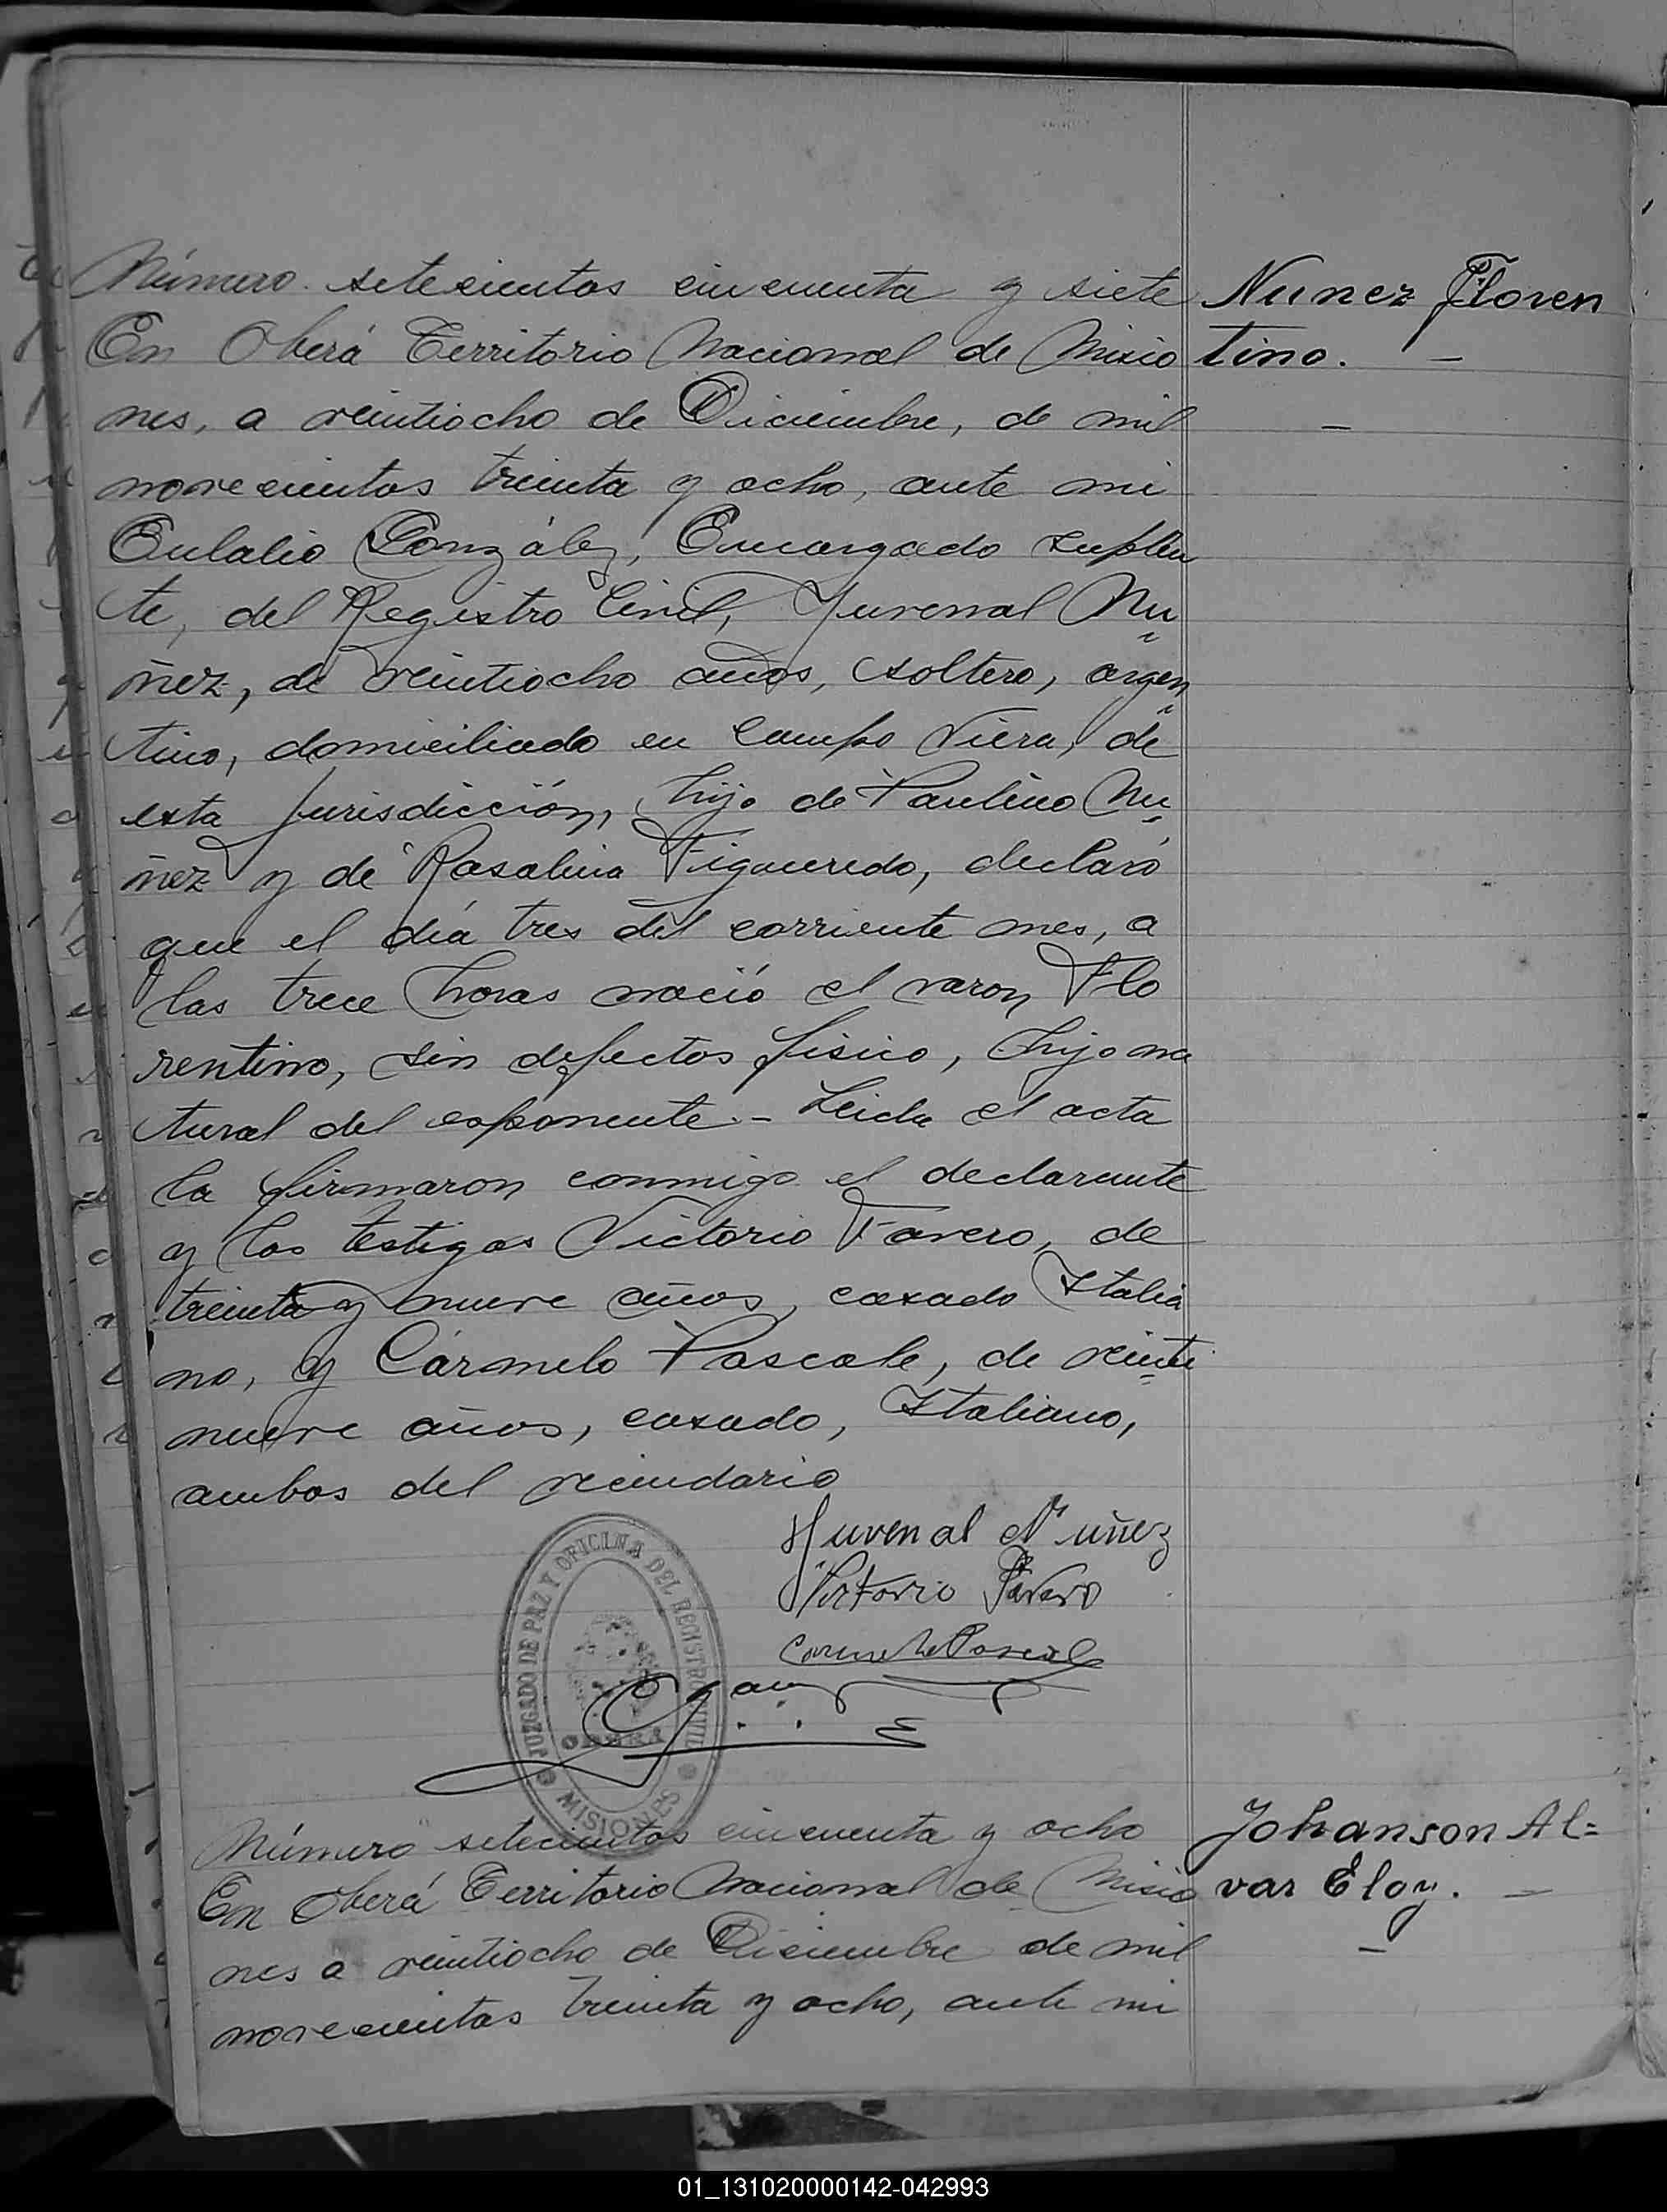 Número setecientos cincuenta y siete
Nunez Floren
En Oberá Territorio Nacional de Misio
tino. —
nes, a veintiocho de Diciembre, de mil
—
novecientos treinta y ocho, ante mi
Eulalio González, Encargado suplen
te, del Registro Civil, Juvenal Nu
ñez, de veintiocho años, soltero, argen
tino, domiciliado en Campo Viera, de
esta jurisdicción, hijo de Paulino Nu
ñez y de Rosalina Figueredo, declaró
que el día tres del corriente mes, a
las trece horas nació el varon, Flo
rentino, sin defectos físico, hijo na
tural del exponente.- Leída el acta
la firmaron conmigo el declarante
y los testigos Victorio Favero, de
treinta y nueve años, casado Italia
no, y Cármelo Pascale, de veinti
nueve años, casado, Italiano,
ambos del vecindario
Huvenal Nuñez
Victorio Favero
Carmelo Pascale
JUZGADO DE PAZ Y OFICINA DEL REGISTRO CIVIL
OBERA
MISIONES
Número setecientos cincuenta y ocho
Johanson Al=
En Oberá Territorio Nacional de Misio
var Eloy. —
nes a veintiocho de Diciembre de mil
—
novecientos treinta y ocho, ante mi
01_131020000142-042993